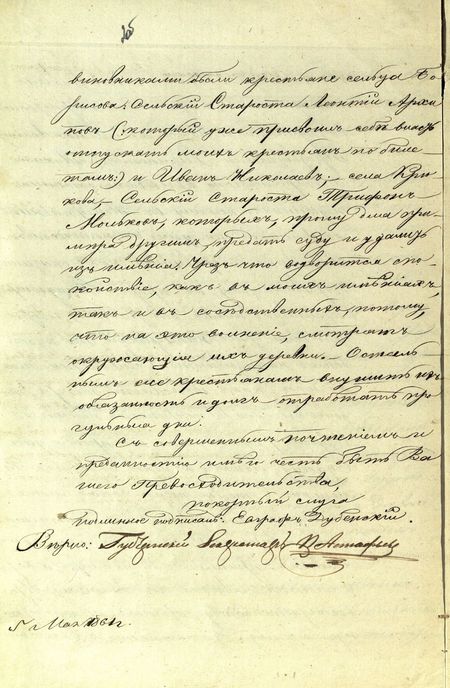 виновниками были крестьяне сельца Бо-
рилова. Сельскій Староста Леонтій Архи-
повъ (который уже присвоилъ себѣ власть
отпускать моихъ крестьянъ по биле-
тамъ:) и Иванъ Николаевъ; села Крю-
кова, Сельскій Староста Трифонъ
которыхъ, прошу для при-
мѣра другимъ, предать суду и удалить
изъ имѣнія. Чрезъ что водворится спо-
койствіе, какъ въ моихъ имѣніяхъ,
такъ и въ сосѣдственныхъ, потому,
что на это волненіе, смотрятъ
окружающія ихъ деревни. Осталь-
нымъ же крестьянамъ внушить ихъ
обязанность и долгъ отработать про-
гульные дни.
Съ совершеннымъ почтеніемъ и
преданностію имѣю честь быть Ва-
шего Превосходительства,
покорный слуга
Подлинное подписалъ: Евграфъ Дубенскій.
Вѣрно: Губернскій
5 Мая 1861 г.